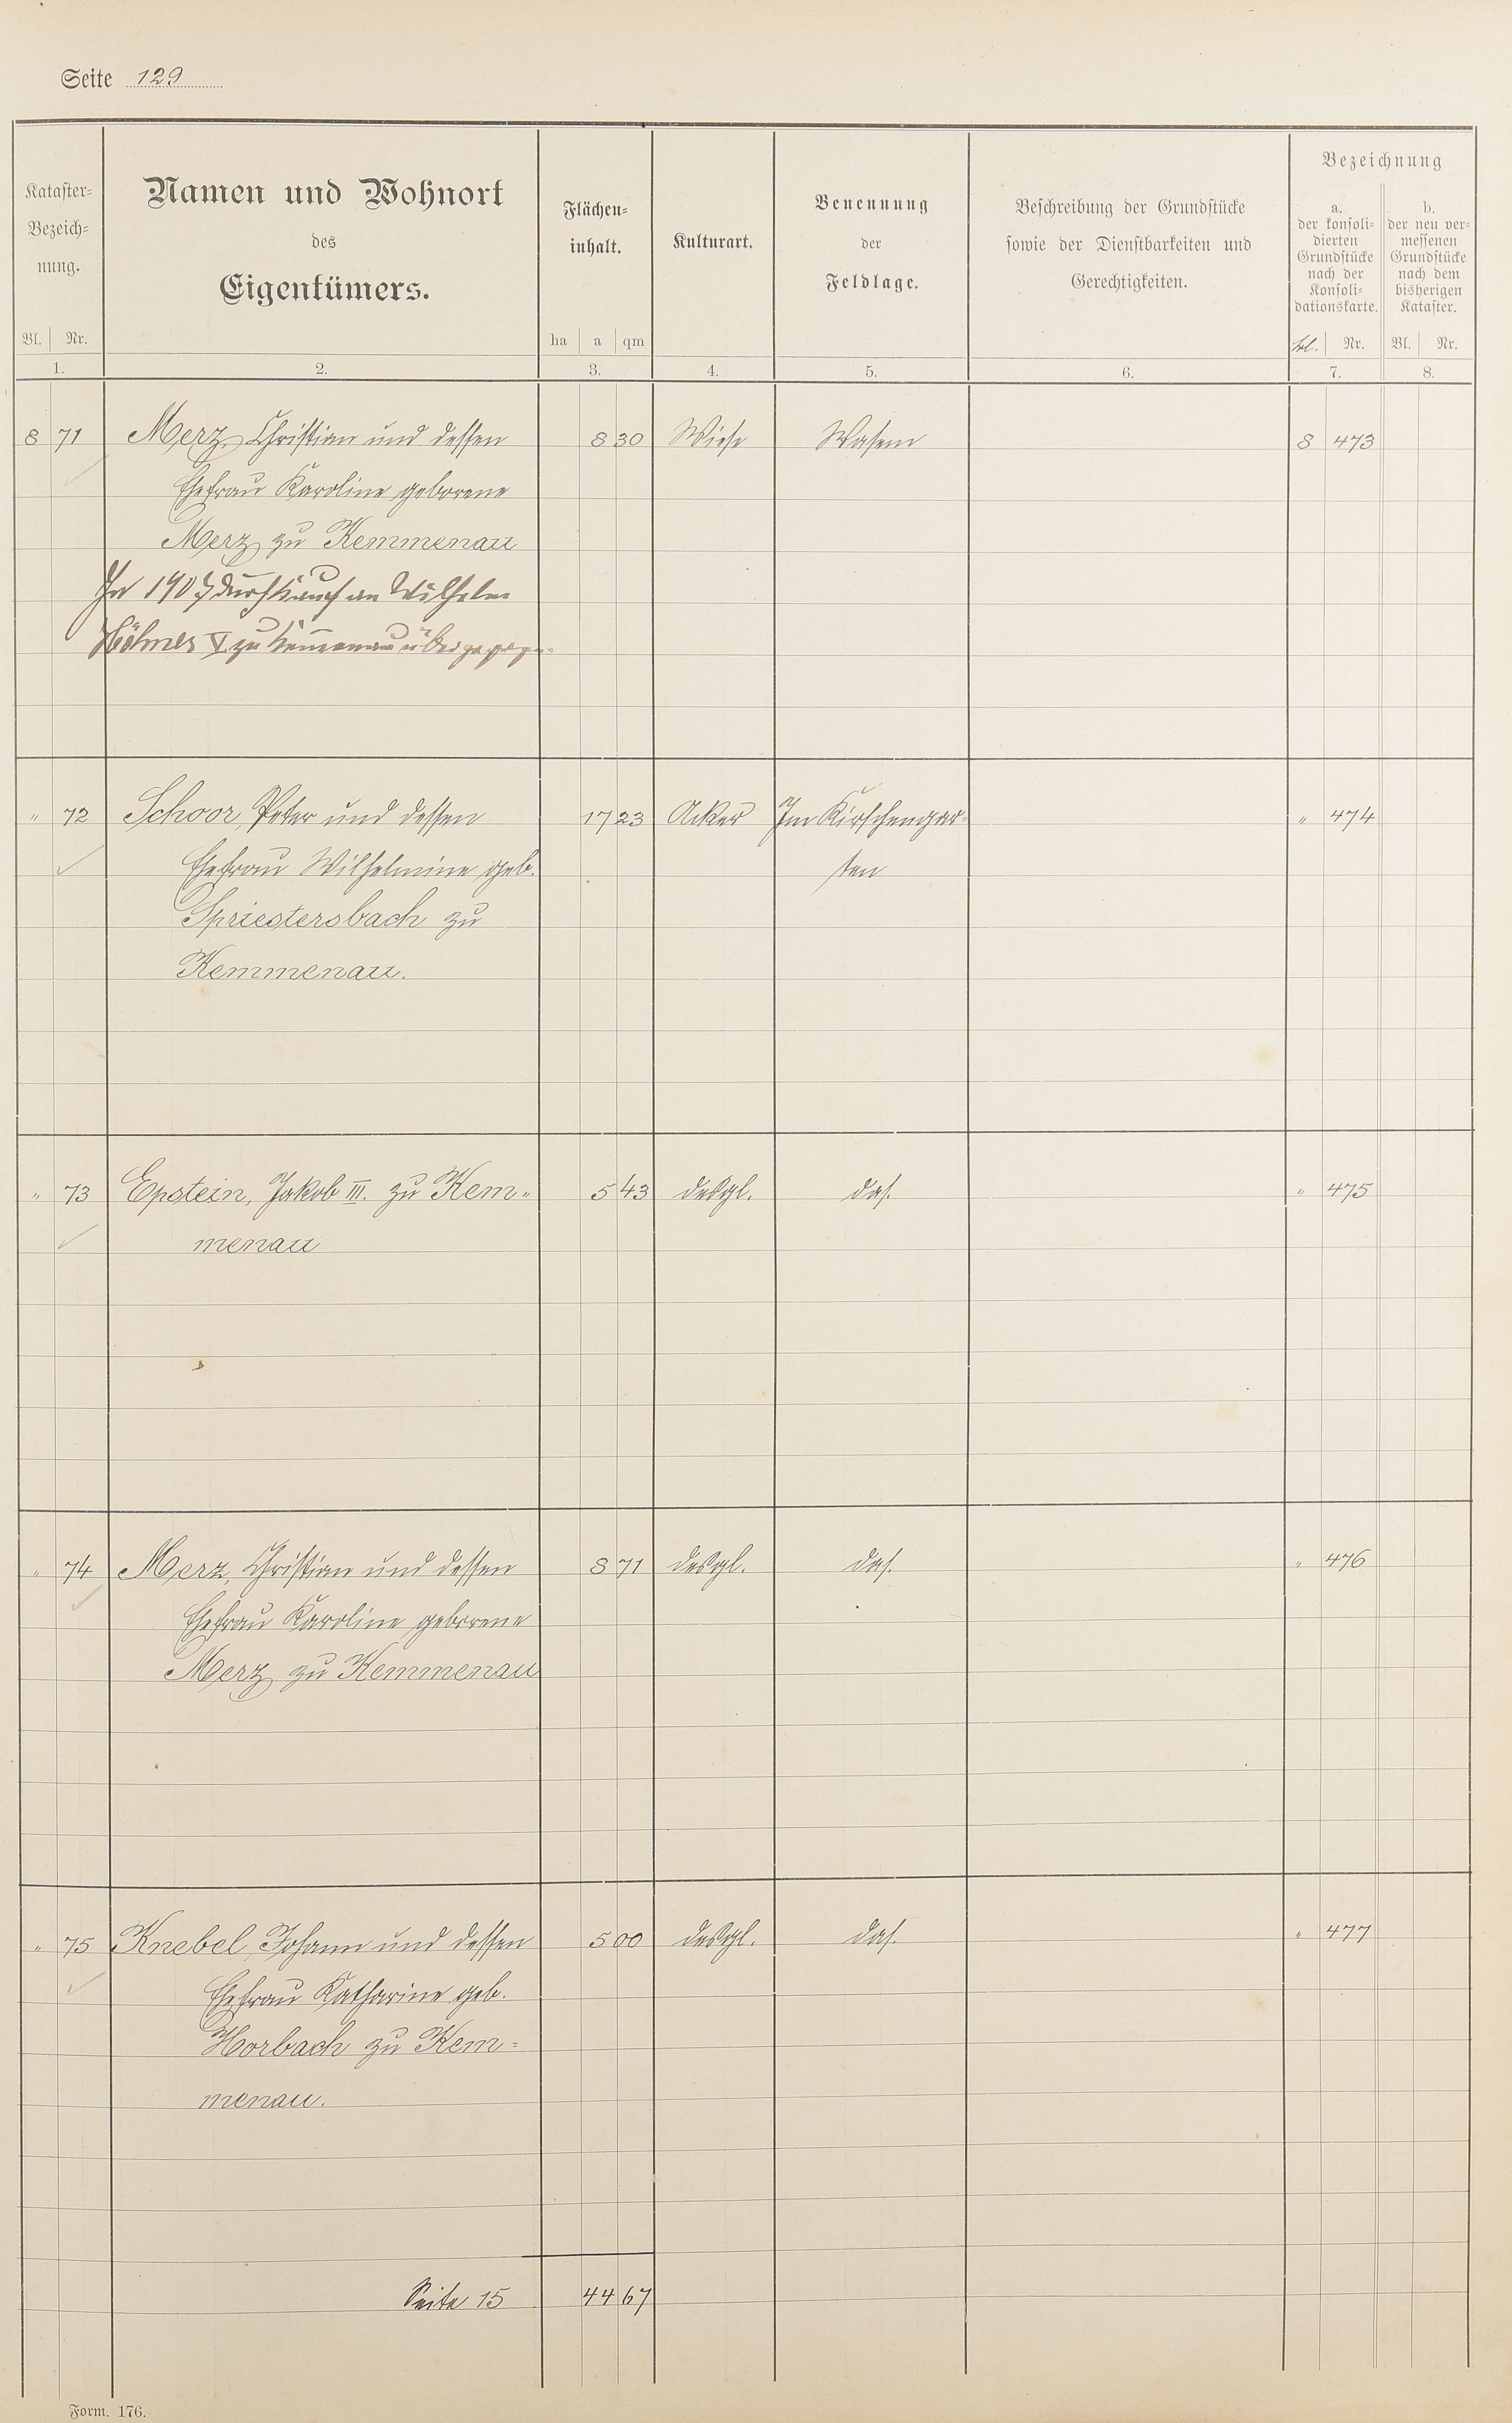 Seite 129
Kataster=
Bezeich=
nung.
Bl. Nr.
1.
Namen und Wohnort
des
Eigentümers.
2.
Flächen=
inhalt.
ha a qm
3.
Kulturart.
4.
Benennung
der
Feldlage.
5.
Beschreibung der Grundstücke
sowie der Dienstbarkeiten und
Gerechtigkeiten.
6.
Bezeichnung
a.
der konsoli=
dierten
Grundstücke
nach der
Konsoli=
dationskarte.
Bl. Nr.
7.
b.
der neu ver=
messenen
Grundstücke
nach dem
bisherigen
Kataster.
Bl. Nr.
8.
8 71 Merz, Christian und dessen 8 30 Wiese Wasem 8 473
Ehefrau Karoline geborene
Merz zu Kemmenau
1907 durch Kauf an Wilhelm
V. zu Kemmenau übergegangen
" 72 Schoor, Peter und dessen 17 23 Acker Im Kirschengar-
ten " 474
Ehefrau Wilhelmine geb.
Spriestersbach zu
Kemmenau.
" 73 Epstein, Jakob III. zu Kem= 5 43 desgl. das. " 475
menau
" 74 Merz, Christian und dessen 8 71 desgl. das. " 476
Ehefrau Karoline geborene
Merz zu Kemmenau
" 75 Knebel, Johann und dessen 5 00 desgl. das. " 477
Ehefrau Katharine geb.
Horbach zu Kem=
menau.
Seite 15 44 67
Form. 176.